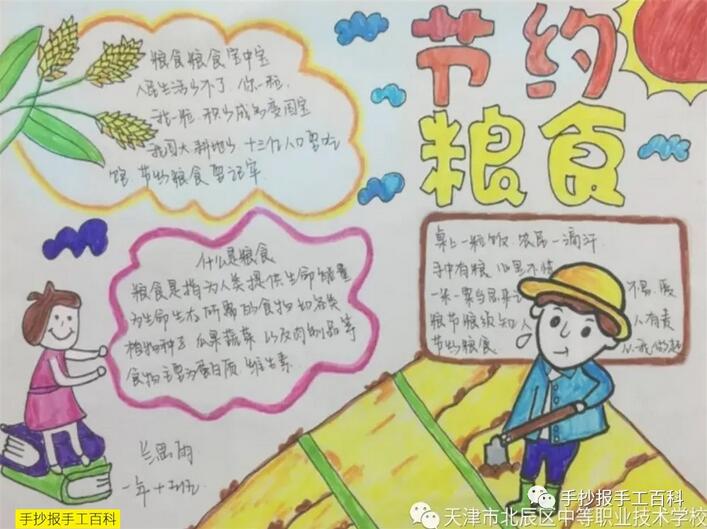 节约
粮食
粮食粮食宝中宝
人民生活少不了 你一粒
我一粒 积少成多变国宝
我国大耕地少 十三亿人口要吃
饱 节约粮食要记牢
什么是粮食
粮食是指为人类提供生命能量
为生命生态所需的食物如谷类
植物种子 瓜果蔬菜 以及肉制品等
食物主要为蛋白质 维生素
桌上一粒饭 农民一滴汗
手中有粮 心里不慌
一米一粟当思来 不易 爱
粮节粮须知人 人有责
节约粮食 从我做起
一年十班
手抄报手工百科
手抄报手工百科
天津市北辰区中等职业技术学校